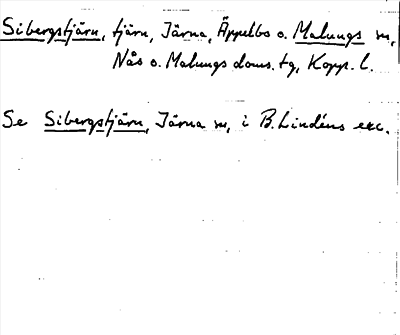 Sibergstjärn, tjärn, Järna, Äppelbo o. Malungs sn,
Nås o. Malungs doms. tg, Kopp. l.
Se Sibergstjärn, Järna sn, i B. Lindéns exc.